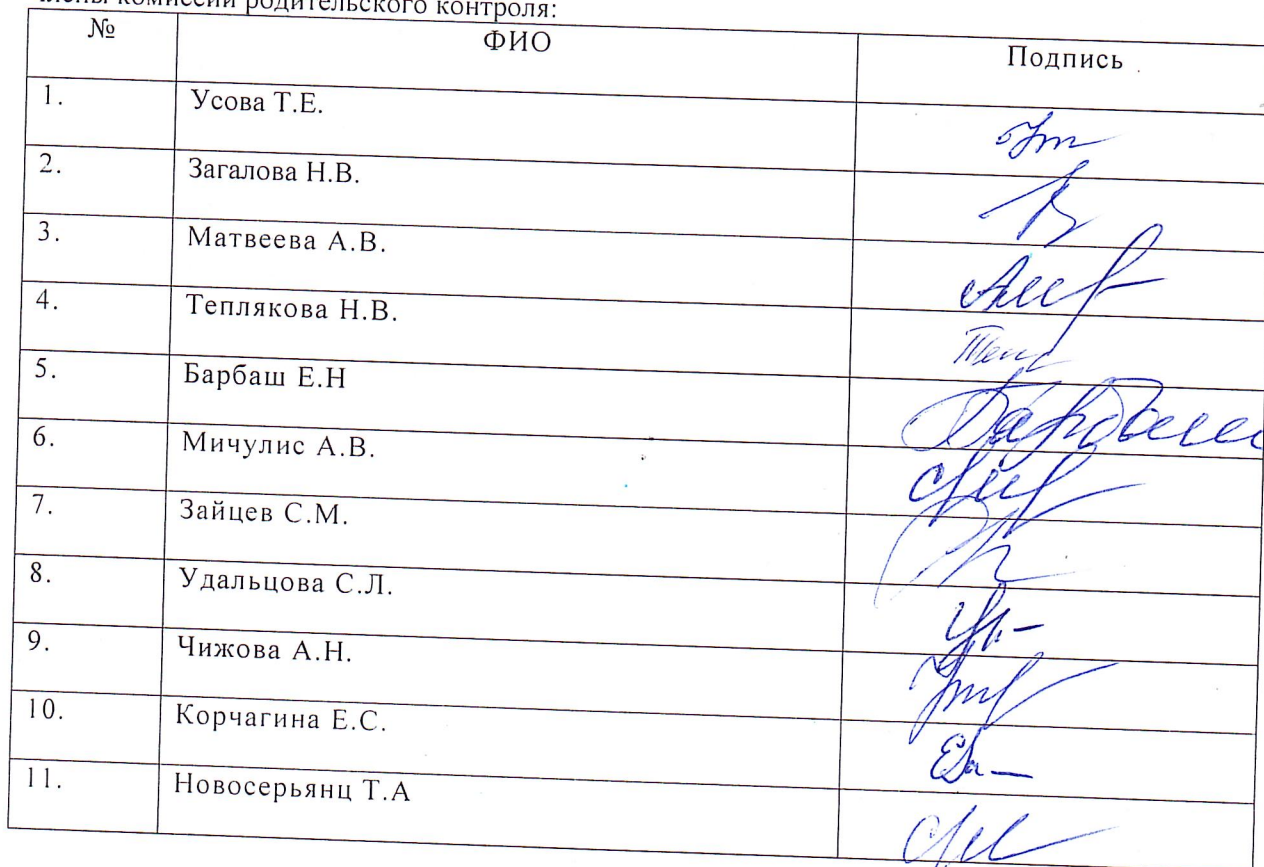 члены комиссии родительского контроля:
№ ФИО Подпись
1. Усова Т.Е.
2. Загалова Н.В.
3. Матвеева А.В.
4. Теплякова Н.В.
5. Барбаш Е.Н Барбаш
6. Мичулис А.В.
7. Зайцев С.М.
8. Удальцова С.Л.
9. Чижова А.Н.
10. Корчагина Е.С.
11. Новосерьянц Т.А